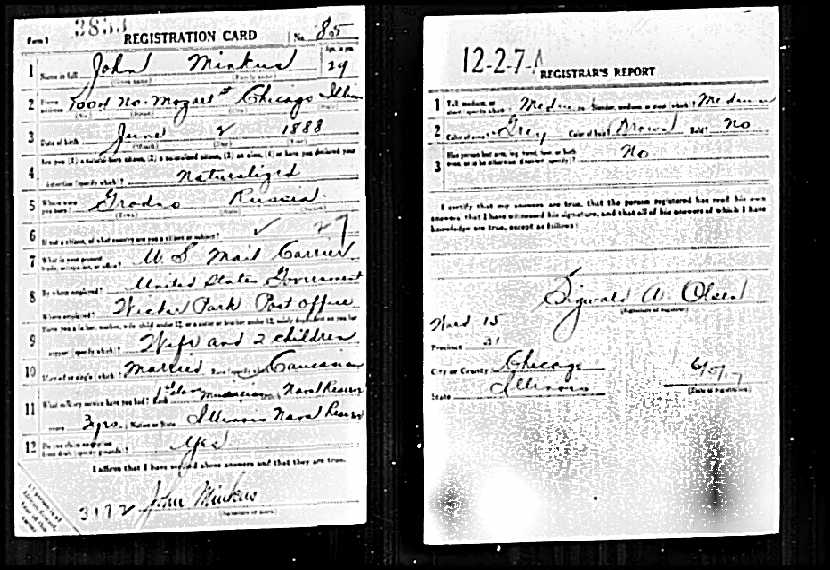 Form 1
3853
REGISTRATION CARD
No. 85
1 Name in full John Minkus
Age, in yrs. 29
2 No. Mozart St Chicago
3 Date of birth June 2 1888
4 Are you (1) a natural-born citizen, (2) a naturalized citizen, (3) an alien, (4) or have you declared your
intention (specify which)? Naturalized
5 Where were you born? Grodno Russia
6 If not a citizen, of what country are you a citizen or subject? ✓ 27
7 What is your present trade, occupation, or office? U.S. Mail Carrier
8 By whom employed? United States Government
Where employed? Wicker Park Post Office
9 Have you a father, mother, wife, child under 12, or a sister or brother under 12, solely dependent on you for
support (specify which)? Wife and 2 children
10 Married or single (which)? Married Race (specify which)? Caucasian
11 What military service have you had? Rank Naval Reserve
years 3 yrs. Nation or State Illinois Naval Reserve
12 Do you claim exemption from draft (specify grounds)? Yes
I affirm that I have verified above answers and that they are true.
3172 John Minkus
(Signature or mark)
12-2-7-A
REGISTRAR'S REPORT
1 Tall, medium, or short (specify which)? Medium Slender, medium, or stout (which)? Medium
2 Color of eyes? Grey Color of hair? Brown Bald? No
3 Has person lost arm, leg, hand, foot, or both eyes, or is he otherwise disabled (specify)? No
I certify that my answers are true, that the person registered has read his own
answers, that I have witnessed his signature, and that all of his answers of which I have
knowledge are true, except as follows:
Sigwald A. Olsen
(Signature of registrar)
Ward 15
Precinct 21
City or County Chicago
State Illinois
(Date of registration)